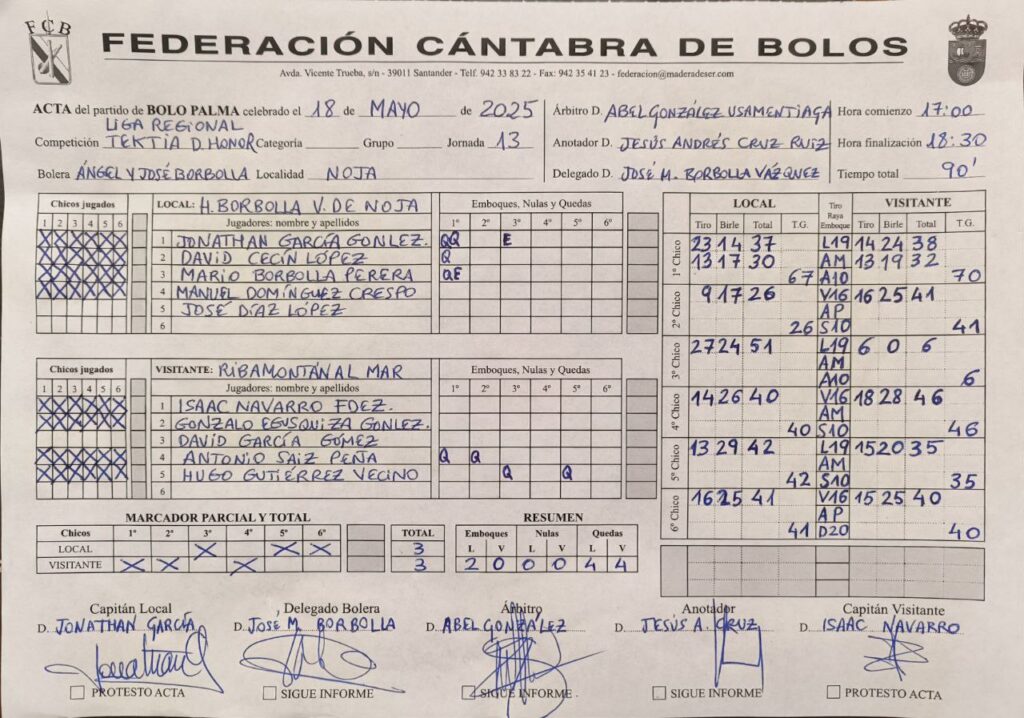 FCB
FEDERACIÓN CÁNTABRA DE BOLOS
Avda. Vicente Trueba, s/n - 39011 Santander - Telf. 942 33 83 22 - Fax: 942 35 41 23 - federacion@maderadeser.com
ACTA del partido de BOLO PALMA celebrado el 18 de MAYO de 2025
LIGA REGIONAL
Competición TEKTIA D. HONOR Categoría Grupo Jornada 13
Bolera ÁNGEL Y JOSÉ BORBOLLA Localidad NOJA
Árbitro D. ABEL GONZÁLEZ USAMENTIAGA
Anotador D. JESÚS ANDRÉS CRUZ RUIZ
Delegado D. JOSÉ M. BORBOLLA VÁZQUEZ
Hora comienzo 17:00
Hora finalización 18:30
Tiempo total 90'
Chicos jugados LOCAL: H. BORBOLLA V. DE NOJA Emboques, Nulas y Quedas
1 2 3 4 5 6 Jugadores: nombre y apellidos 1º 2º 3º 4º 5º 6º
X X X X X X 1 JONATHAN GARCÍA GONLEZ. QQ E
X X X X X X 2 DAVID CECÍN LÓPEZ Q
X X X X X X 3 MARIO BORBOLLA PERERA QE
X X X X X X 4 MANUEL DOMÍNGUEZ CRESPO
5 JOSÉ DÍAZ LÓPEZ
6
Chicos jugados VISITANTE: RIBAMONTÁN AL MAR Emboques, Nulas y Quedas
1 2 3 4 5 6 Jugadores: nombre y apellidos 1º 2º 3º 4º 5º 6º
X X X X X X 1 ISAAC NAVARRO FDEZ.
X X X X X X 2 GONZALO EGUSQUIZA GONLEZ.
3 DAVID GARCÍA GÓMEZ
X X X X X X 4 ANTONIO SAIZ PEÑA Q Q
X X X X X X 5 HUGO GUTIÉRREZ VECINO Q Q
6
MARCADOR PARCIAL Y TOTAL
Chicos 1º 2º 3º 4º 5º 6º TOTAL
LOCAL X X X 3
VISITANTE X X X 3
RESUMEN
Emboques Nulas Quedas
L V L V L V
2 0 0 0 4 4
LOCAL Tiro Raya Emboque VISITANTE
Tiro Birle Total T.G. Tiro Birle Total T.G.
1º Chico 23 14 37 L19 14 24 38
13 17 30 AM 13 19 32
67 A10 70
2º Chico 9 17 26 V16 16 25 41
AP
26 S10 41
3º Chico 27 24 51 L19 6 0 6
AM
A10 6
4º Chico 14 26 40 V16 18 28 46
AM
40 S10 46
5º Chico 13 29 42 L19 15 20 35
AM
42 S10 35
6º Chico 16 25 41 V16 15 25 40
AP
41 D20 40
Capitán Local Delegado Bolera Árbitro Anotador Capitán Visitante
D. JONATHAN GARCÍA D. JOSE M. BORBOLLA D. ABEL GONZÁLEZ D. JESÚS A. CRUZ D. ISAAC NAVARRO
PROTESTO ACTA SIGUE INFORME SIGUE INFORME SIGUE INFORME PROTESTO ACTA